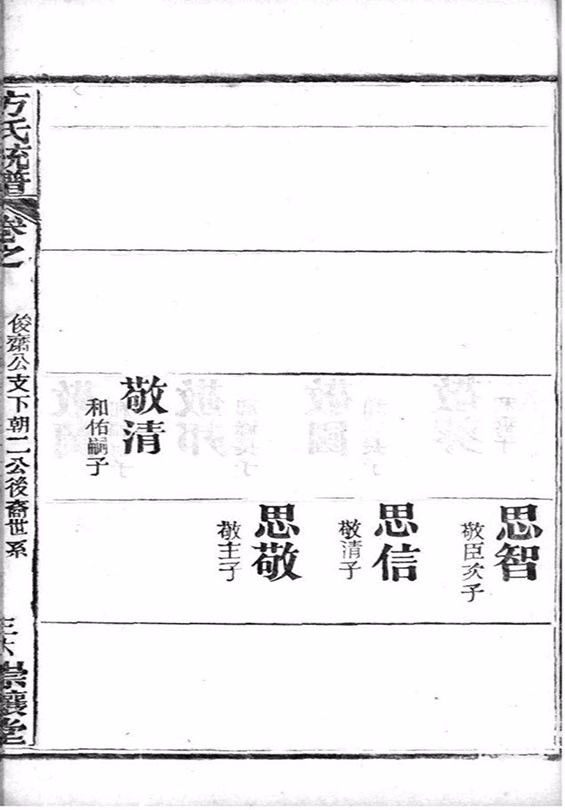 敬清
和佑嗣子
思智
敬臣次子
思信
敬清子
思敬
敬主子
方氏統譜
卷之
俊齋公支下朝二公後裔世系
崇讓堂